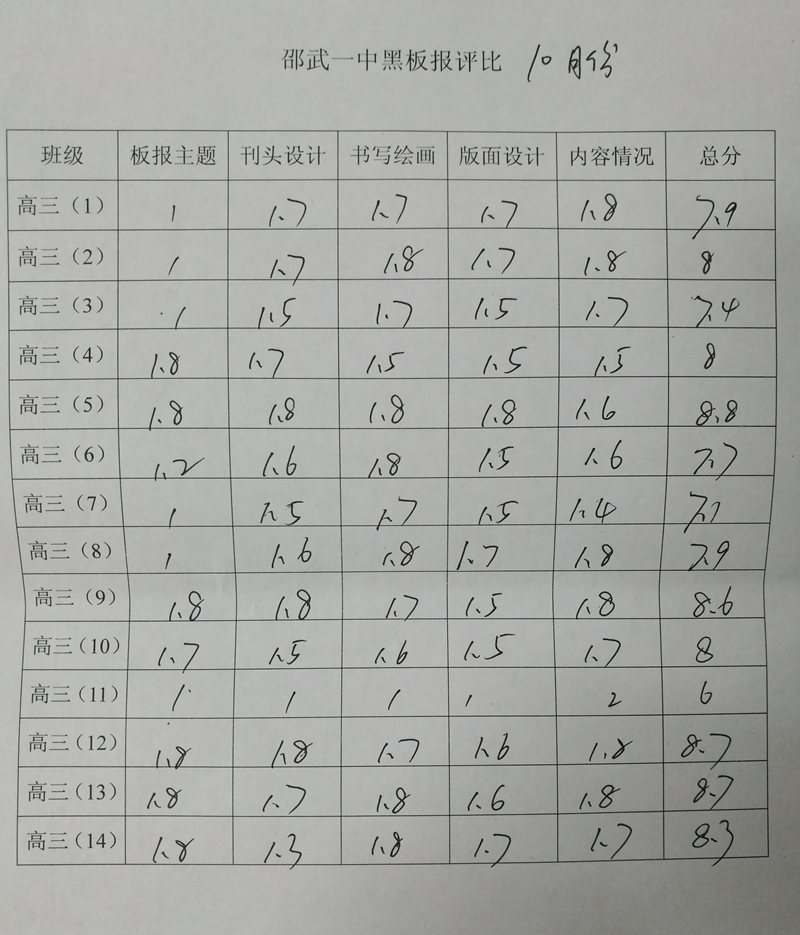 邵武一中黑板报评比 10月份
班级 板报主题 刊头设计 书写绘画 版面设计 内容情况 总分
高三（1） 1 1.7 1.7 1.7 1.8 7.9
高三（2） 1 1.7 1.8 1.7 1.8 8
高三（3） 1 1.5 1.7 1.5 1.7 7.4
高三（4） 1.8 1.7 1.5 1.5 1.5 8
高三（5） 1.8 1.8 1.8 1.8 1.6 8.8
高三（6） 1.2 1.6 1.8 1.5 1.6 7.7
高三（7） 1 1.5 1.7 1.5 1.4 7.1
高三（8） 1 1.6 1.8 1.7 1.8 7.9
高三（9） 1.8 1.8 1.7 1.5 1.8 8.6
高三（10） 1.7 1.5 1.6 1.5 1.7 8
高三（11） 1 1 1 1 2 6
高三（12） 1.8 1.8 1.7 1.6 1.8 8.7
高三（13） 1.8 1.7 1.8 1.6 1.8 8.7
高三（14） 1.8 1.3 1.8 1.7 1.7 8.3